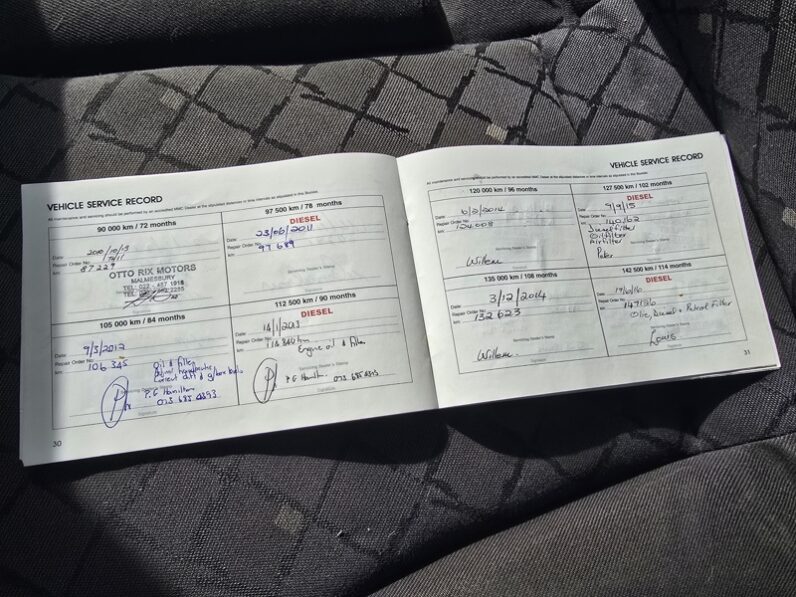 VEHICLE SERVICE RECORD
All maintenance and servicing should be performed by an accredited MMC Dealer at the stipulated distances or time intervals as stipulated in this booklet.
90 000 km / 72 months
Date
2010/10/13
Repair Order No.
km
87229
OTTO RIX MOTORS
MALMESBURY
TEL: 022 - 487 1918
97 500 km / 78 months
DIESEL
Date
23/06/2011
Repair Order No.
km
97 689
Servicing Dealer's Stamp
Signature
105 000 km / 84 months
Date
9/5/2012
Repair Order No.
km
106 345
Oil & Filter
P.E Hamilton
Signature
112 500 km / 90 months
DIESEL
Date
14/1/2013
Repair Order No.
km
Engine oil & Filter
Servicing Dealer's Stamp
P.E Hamilton
Signature
30
VEHICLE SERVICE RECORD
All maintenance and servicing should be performed by an accredited MMC Dealer at the stipulated distances or time intervals as stipulated in this booklet.
120 000 km / 96 months
Date
10/2/2014
Repair Order No.
km
124 008
Servicing Dealer's Stamp
Signature
127 500 km / 102 months
DIESEL
Date
9/9/15
Repair Order No.
km
140162
Diesel filter
Oil filter
Air filter
Peter
Signature
135 000 km / 108 months
Date
3/12/2014
Repair Order No.
km
132 623
Servicing Dealer's Stamp
Signature
142 500 km / 114 months
DIESEL
Date
Repair Order No.
km
Servicing Dealer's Stamp
Louis
Signature
31